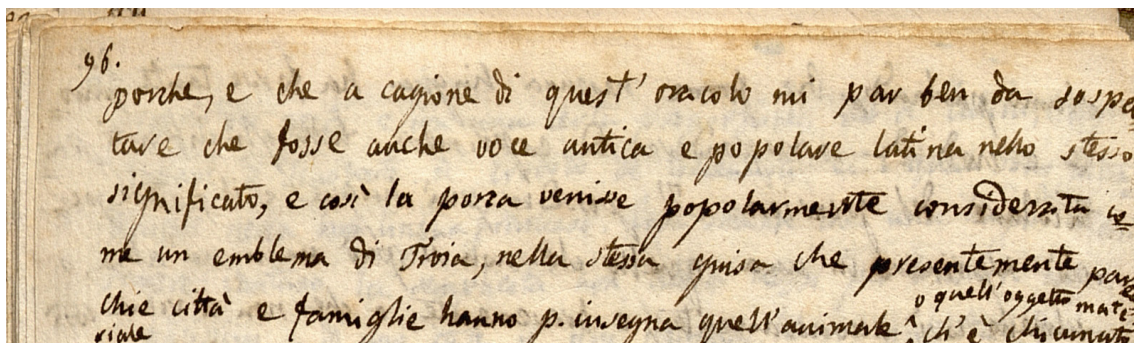 96.
porche, e che a cagione di quest' oracolo mi par ben da sospe-
tare che fosse anche voce antica e popolare latina nello stesso
significato, e così la porca venisse popolarmente considerata co-
me un emblema di Troia, nella stessa guisa che presentemente parec-
o quell'oggetto mate-
chie città e famiglie hanno p. insegna quell'animale ch'è chiamato
riale